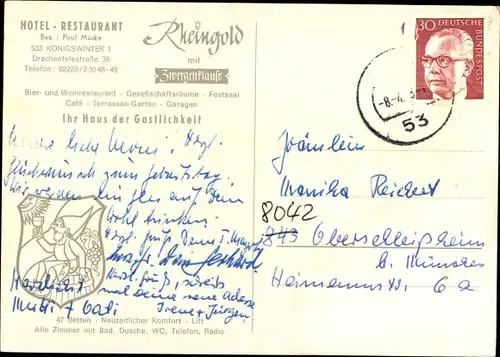 HOTEL - RESTAURANT
Bes.: Paul Mücke
533 KÖNIGSWINTER 1
Drachenfelsstraße 36
Telefon: 02223/23048-49
Rheingold
mit
Zwergenklause
Bier- und Weinrestaurant - Gesellschaftsräume - Festsaal
Café - Terrassen-Garten - Garagen
Ihr Haus der Gastlichkeit
30 DEUTSCHE
BUNDESPOST
53
Meine liebe Moni! Herzl.
Glückwunsch zum Geburtstag.
Wir werden ein Glas auf Dein
Wohl trinken.
Herzl. Grüße Deine
Gerhard
Herzlichst
Mutti + Vati
Herzl. Grüße, schreib
mal deine neue Adresse
Irene + Jürgen
Fräulein
Monika Reichert
8042
Oberschleißheim
b. München
6a
47 Betten - Neuzeitlicher Komfort - Lift
Alle Zimmer mit Bad, Dusche, WC, Telefon, Radio